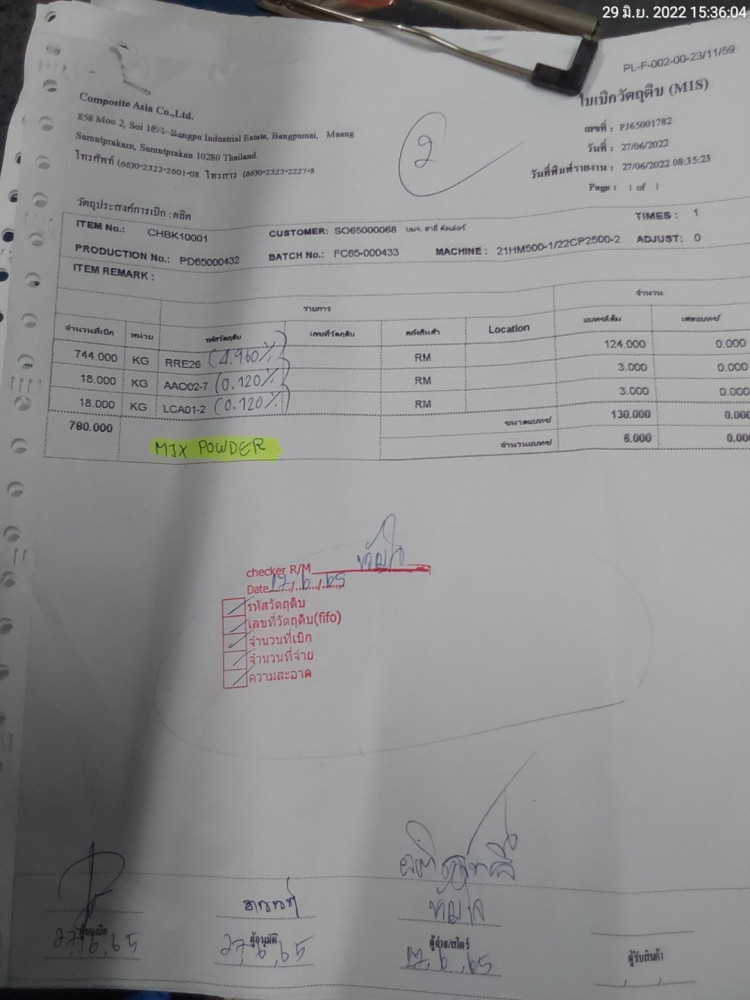 29 มิ.ย. 2022 15:36:04
PL-F-002-00-23/11/59
ใบเบิกวัตถุดิบ (MIS)
Composite Asia Co.,Ltd.
858 Moo 2, Soi Bangpu Industrial Estate, Bangpumai, Muang
Samutprakarn, Samutprakan 10280 Thailand.
โทรศัพท์ (66)0-2323-2601-08 โทรสาร (66)0-2323-2227-8
2
เลขที่ : PJ65001782
วันที่ : 27/06/2022
วันที่พิมพ์รายงาน : 27/06/2022 08:35:23
Page : 1 of 1
วัตถุประสงค์การเบิก : ผลิต
ITEM No.: CHBK10001 CUSTOMER: SO65000068 TIMES : 1
PRODUCTION No.: PD65000432 BATCH No.: FC65-000433 MACHINE : 21HM500-1/22CP2500-2 ADJUST: 0
ITEM REMARK :
รายการ จำนวน
จำนวนที่เบิก หน่วย รหัสวัตถุดิบ เลขที่วัตถุดิบ คลังสินค้า Location แบทช์เต็ม เศษแบทช์
744.000 KG RRE26 (4.960%) RM 124.000 0.000
18.000 KG AAO02-7 (0.120%) RM 3.000 0.000
18.000 KG LCA01-2 (0.120%) RM 3.000 0.000
780.000 ขนาดแบทช์ 130.000 0.000
MIX POWDER จำนวนแบทช์ 6.000 0.00
checker R/M
Date 27/6/65
รหัสวัตถุดิบ
เลขที่วัตถุดิบ(fifo)
จำนวนที่เบิก
จำนวนที่จ่าย
ความสะอาด
ผู้ขอเบิก ผู้อนุมัติ ผู้จ่าย/สโตร์ ผู้รับสินค้า
27, 6, 65 27, 6, 65 27, 6, 65